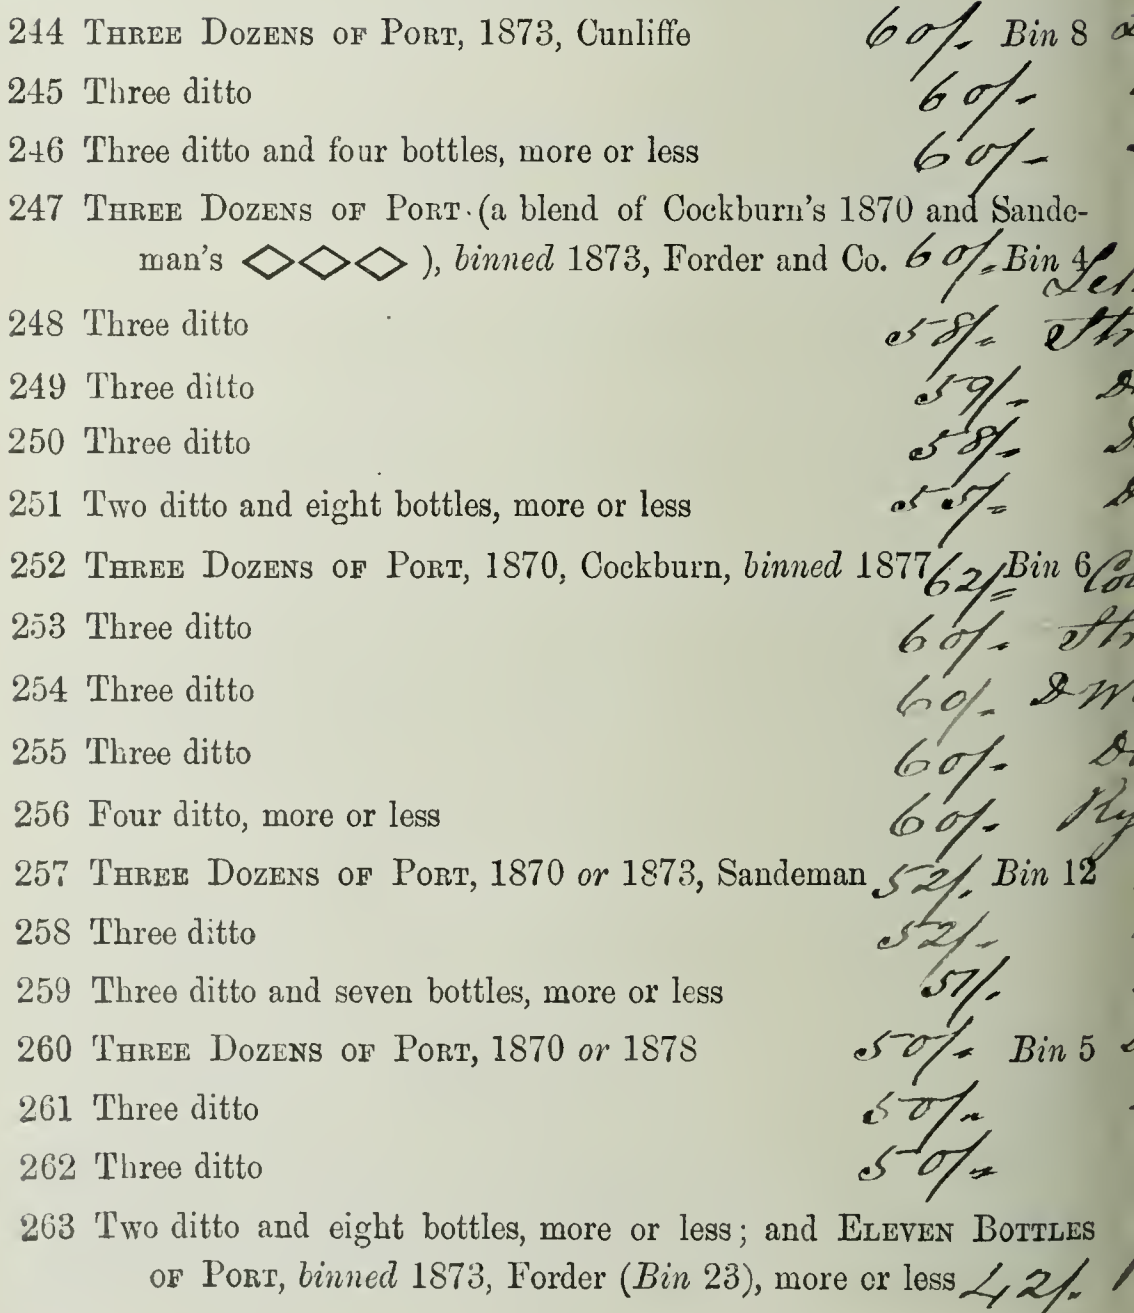 244 THREE DOZENS OF PORT, 1873, Cunliffe 60/- Bin 8
245 Three ditto 60/-
246 Three ditto and four bottles, more or less 60/-
247 THREE DOZENS OF PORT (a blend of Cockburn's 1870 and Sande-
man's ◇◇◇ ), binned 1873, Forder and Co. 60/- Bin 4
248 Three ditto 58/-
249 Three ditto 59/-
250 Three ditto 58/-
251 Two ditto and eight bottles, more or less 55/-
252 THREE DOZENS OF PORT, 1870, Cockburn, binned 1877 62/= Bin 6
253 Three ditto 60/-
254 Three ditto 60/-
255 Three ditto 60/-
256 Four ditto, more or less 60/-
257 THREE DOZENS OF PORT, 1870 or 1873, Sandeman 52/- Bin 12
258 Three ditto 52/-
259 Three ditto and seven bottles, more or less 51/-
260 THREE DOZENS OF PORT, 1870 or 1878 50/- Bin 5
261 Three ditto 50/-
262 Three ditto 50/-
263 Two ditto and eight bottles, more or less; and ELEVEN BOTTLES
OF PORT, binned 1873, Forder (Bin 23), more or less 42/-